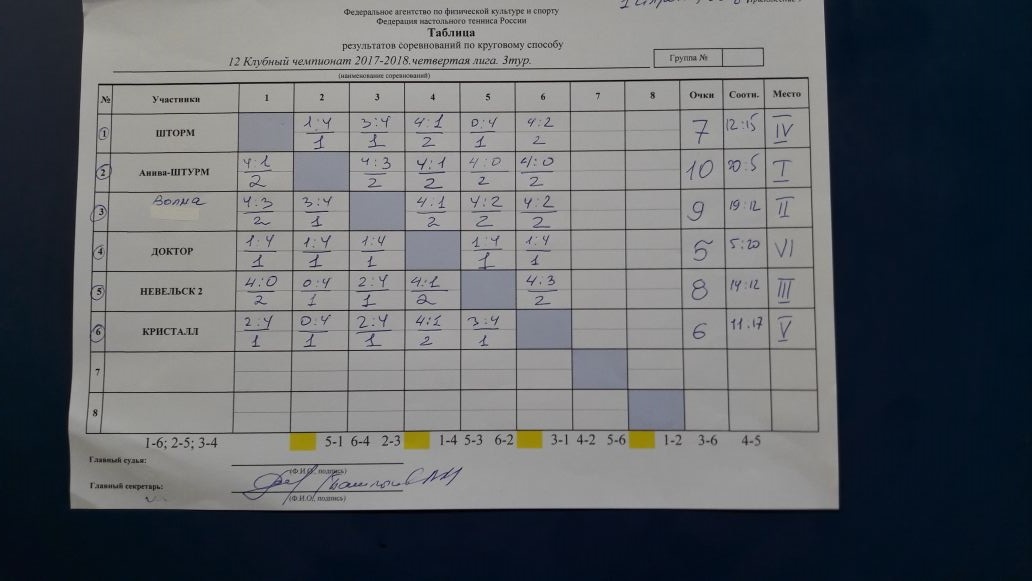 Федеральное агентство по физической культуре и спорту
Федерация настольного тенниса России
Таблица
результатов соревнований по круговому способу
12 Клубный чемпионат 2017-2018.четвертая лига. 3тур.
Группа №
(наименование соревнований)
№ Участники 1 2 3 4 5 6 7 8 Очки Соотн. Место
1 ШТОРМ 1:4/1 3:4/1 4:1/2 0:4/1 4:2/2 7 12:15 IV
2 Анива-ШТУРМ 4:1/2 4:3/2 4:1/2 4:0/2 4:0/2 10 20:5 I
3 Волна 4:3/2 3:4/1 4:1/2 4:2/2 4:2/2 9 19:12 II
4 ДОКТОР 1:4/1 1:4/1 1:4/1 1:4/1 1:4/1 5 5:20 VI
5 НЕВЕЛЬСК 2 4:0/2 0:4/1 2:4/1 4:1/2 4:3/2 8 14:12 III
6 КРИСТАЛЛ 2:4/1 0:4/1 2:4/1 4:1/2 3:4/1 6 11.17 V
7
8
1-6; 2-5; 3-4 5-1 6-4 2-3 1-4 5-3 6-2 3-1 4-2 5-6 1-2 3-6 4-5
Главный судья:
(Ф.И.О., подпись)
Главный секретарь:
(Ф.И.О., подпись)